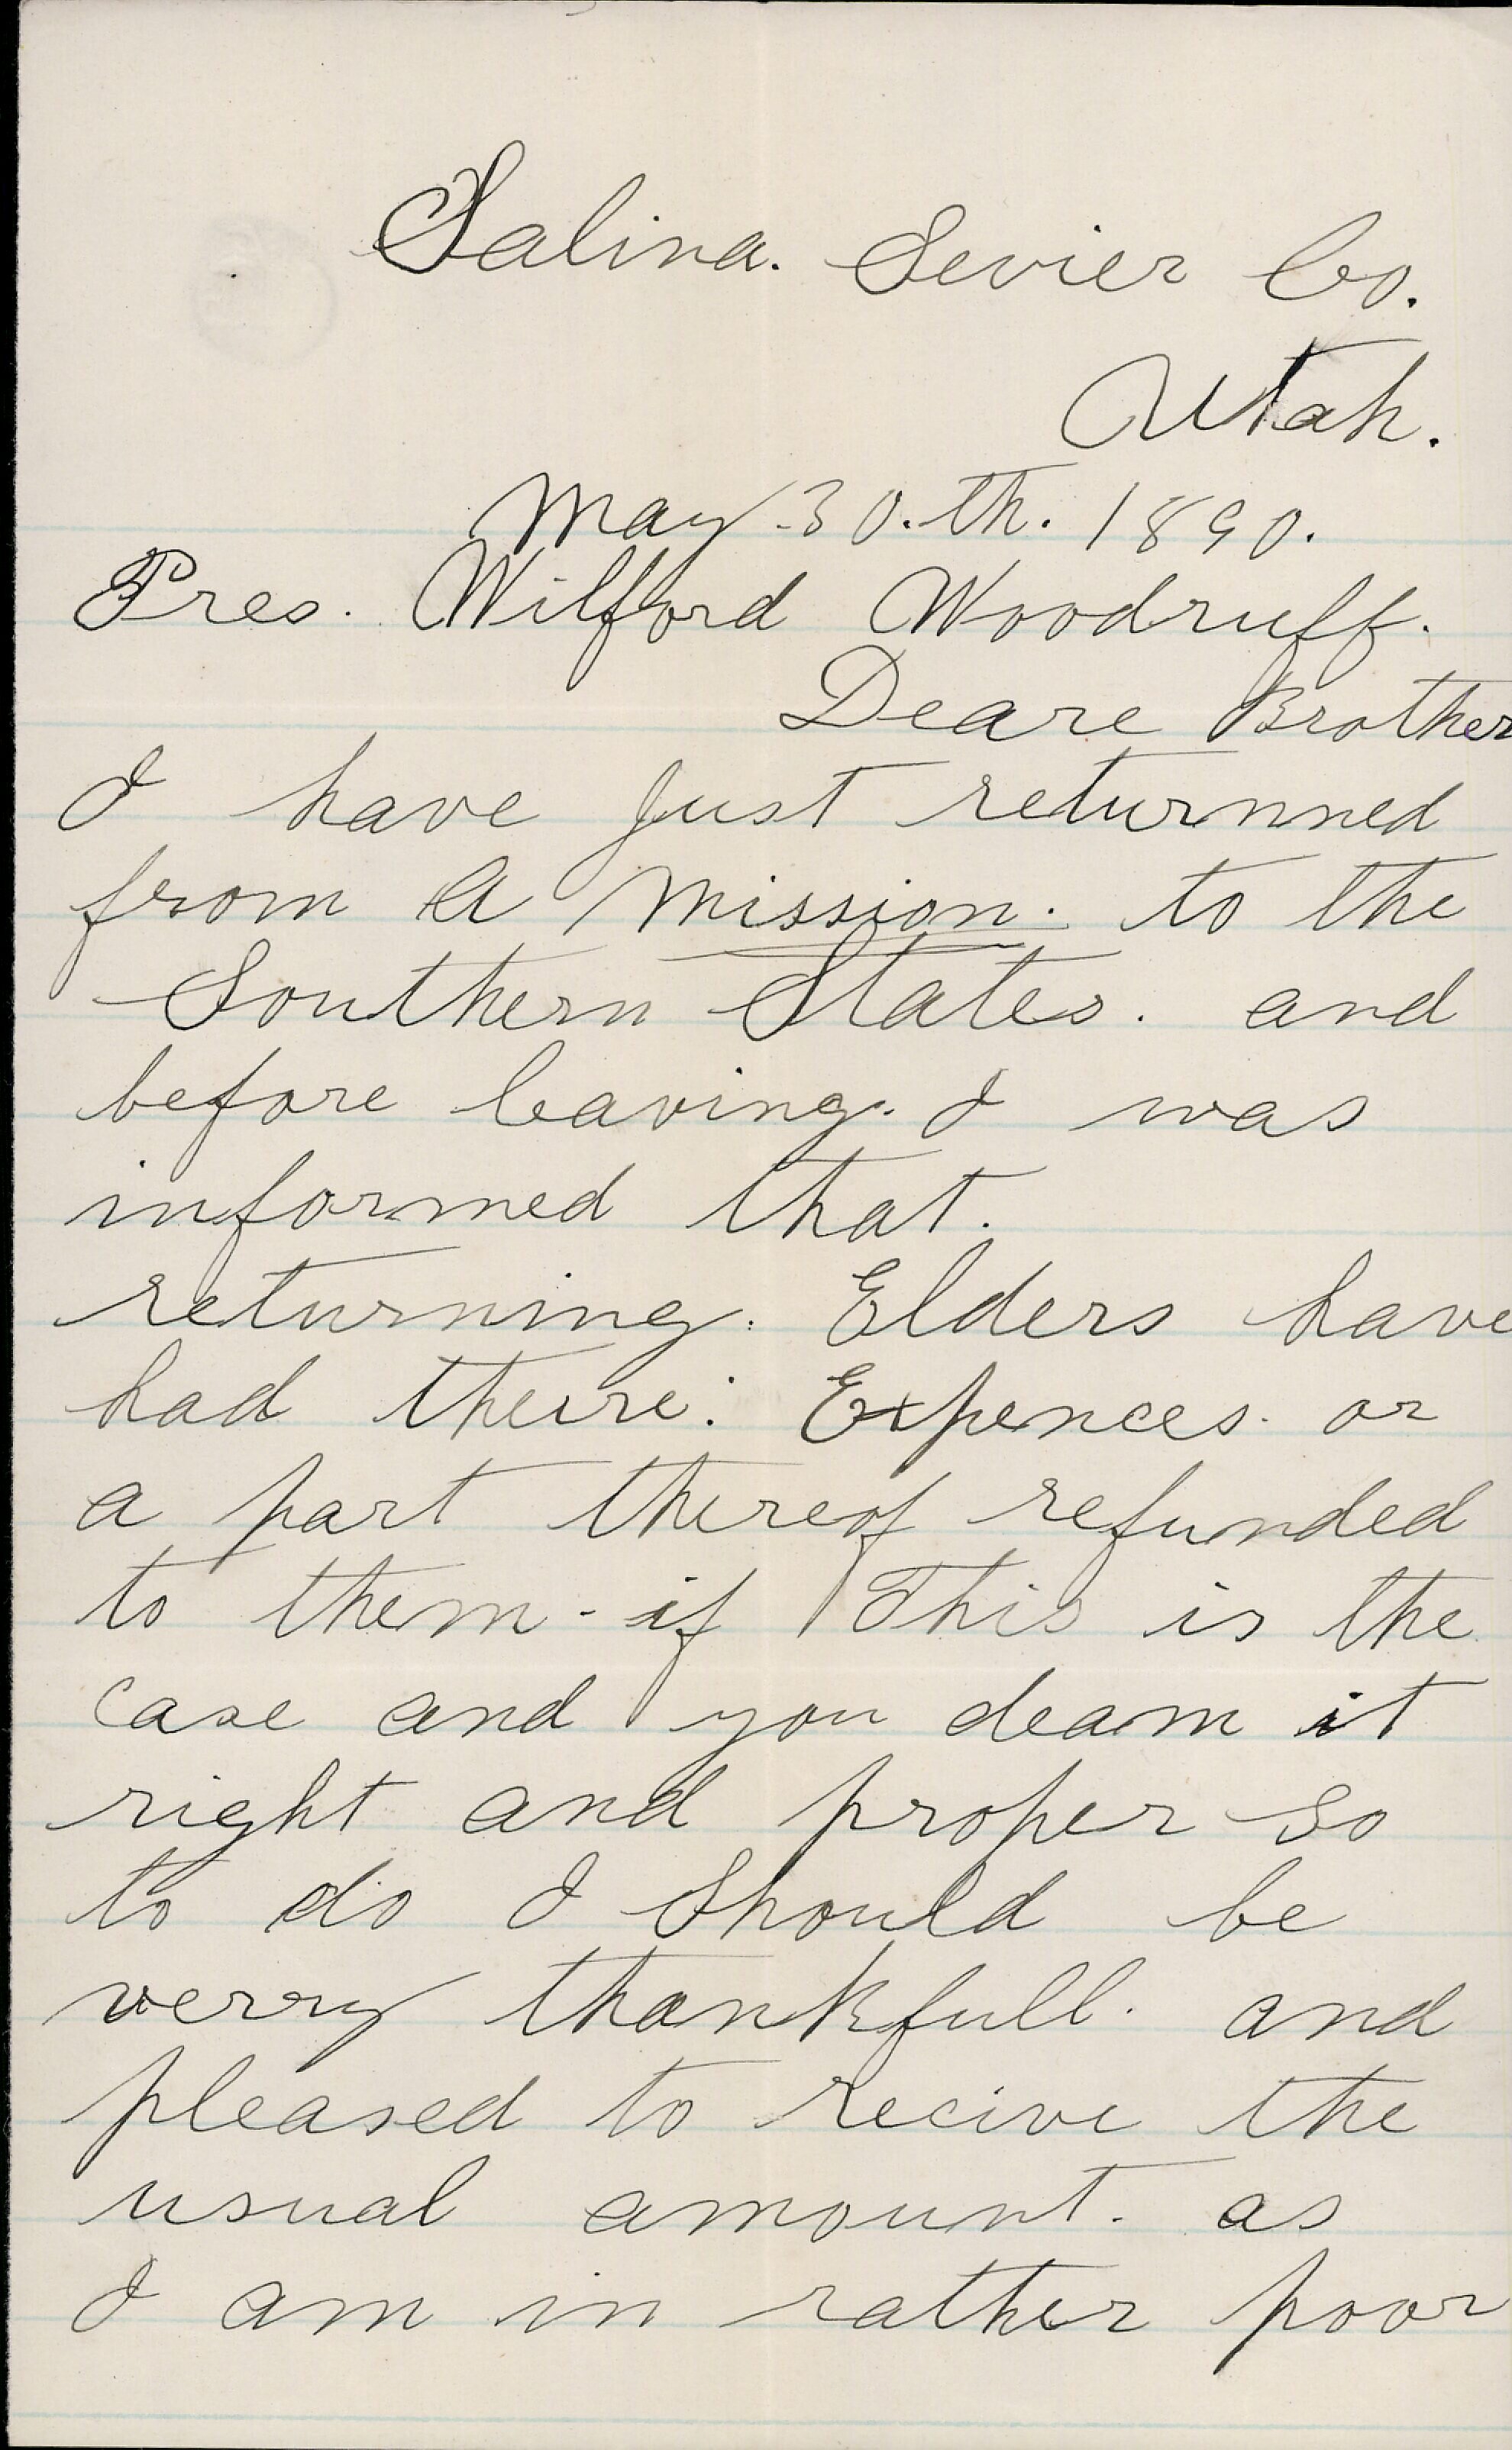 Salina. Sevier Co.
Utah.
May 30.th. 1890.
Pres. Wilford Woodruff.
Deare Brother
I have just returnned
from A Mission. to the
Southern States. and
before leaving. I was
informed that.
returning. Elders have
had theire. Expences. or
a part thereof refunded
to them - if This is the
case and you deam it
right and proper so
to do I Should be
verry thankfull. and
pleased to recive the
usual amount. as
I am in rather poor